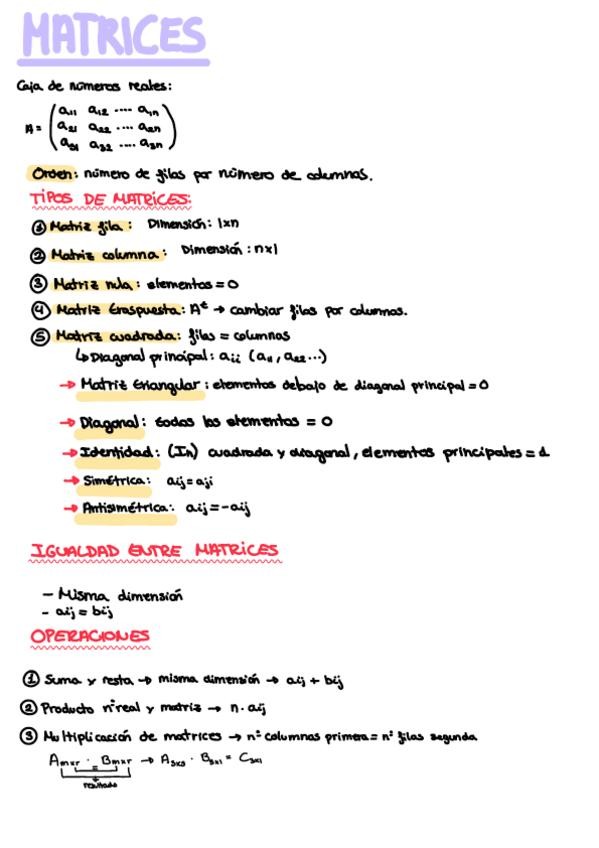 MATRICES
Caja de números reales:
A = ( a₁₁ a₁₂ .... a₁n
a₂₁ a₂₂ .... a₂n
a₃₁ a₃₂ .... a₃n )
Orden: número de filas por número de columnas.
TIPOS DE MATRICES:
① Matriz fila: Dimensión: 1xn
② Matriz columna: Dimensión: nx1
③ Matriz nula: elementos = 0
④ Matriz traspuesta: Aᵗ → cambiar filas por columnas.
⑤ Matriz cuadrada: filas = columnas
↳ Diagonal principal: aii (a₁₁, a₂₂...)
→ Matriz triangular: elementos debajo de diagonal principal = 0
→ Diagonal: todos los elementos = 0
→ Identidad: (In) cuadrada y diagonal, elementos principales = 1
→ Simétrica: aij = aji
→ Antisimétrica: aij = -aij
IGUALDAD ENTRE MATRICES
- Misma dimensión
- aij = bij
OPERACIONES
① Suma y resta → misma dimensión → aij + bij
② Producto nº real y matriz → n · aij
③ Multiplicación de matrices → nº columnas primera = nº filas segunda
Amxr · Bmxr → A₃ₓ₃ · B₃ₓ₁ = C₃ₓ₁
=
resultado